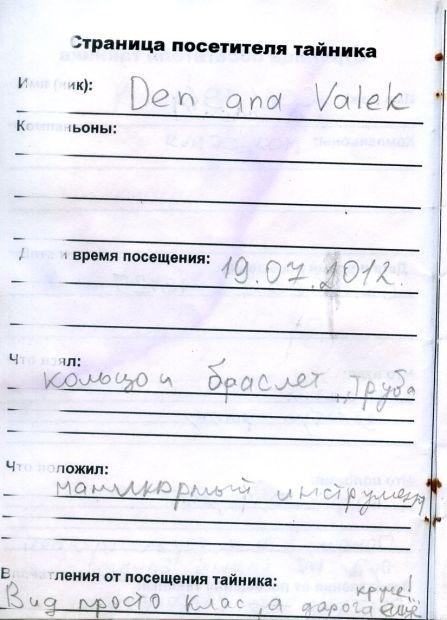 Страница посетителя тайника
Имя (ник): Den and Valek
Компаньоны:
Дата и время посещения: 19.07.2012.
Что взял:
кольцо и браслет, труба
Что положил:
маникюрный инструмент
Впечатления от посещения тайника:
круче!
Вид просто клас, а дорога ещё